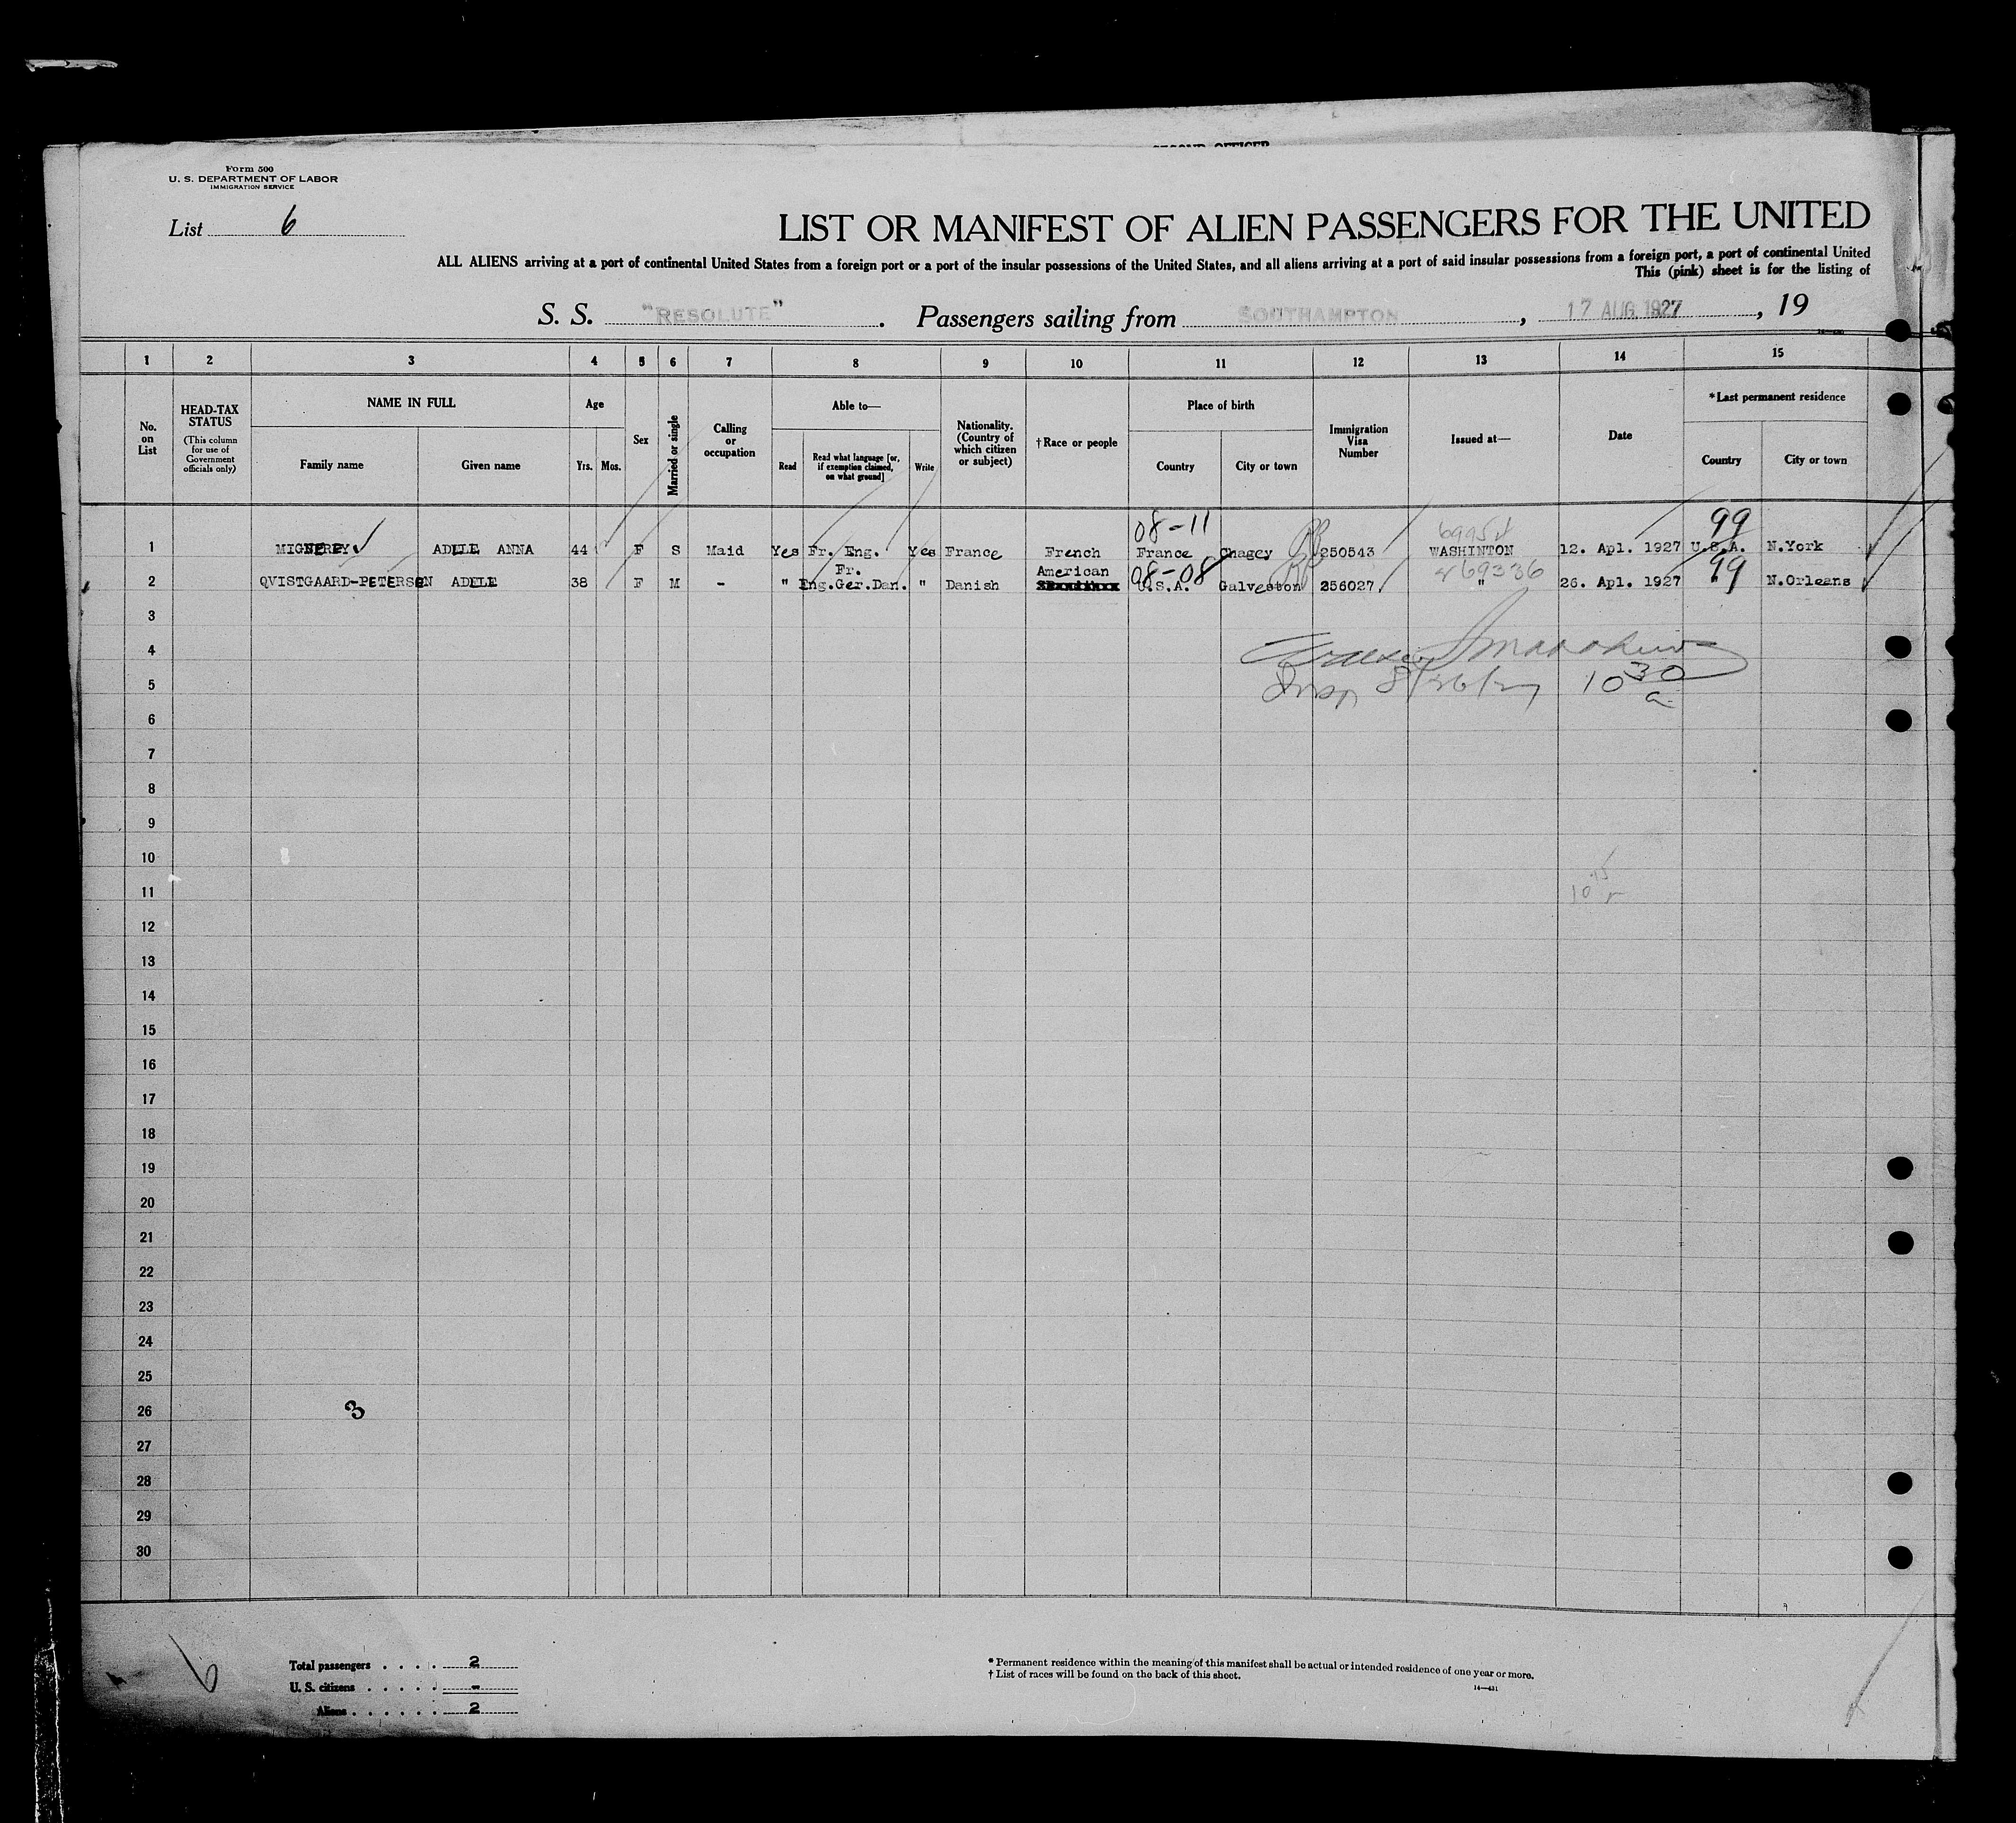 SECOND OFFICER
Form 500
U. S. DEPARTMENT OF LABOR
IMMIGRATION SERVICE
List 6
LIST OR MANIFEST OF ALIEN PASSENGERS FOR THE UNITED
ALL ALIENS arriving at a port of continental United States from a foreign port or a port of the insular possessions of the United States, and all aliens arriving at a port of said insular possessions from a foreign port, a port of continental United
This (pink) sheet is for the listing of
S. S. "RESOLUTE". Passengers sailing from SOUTHAMPTON, 17 AUG 1927, 19
1 2 3 4 5 6 7 8 9 10 11 12 13 14 15
No. on List
HEAD-TAX STATUS
(This column for use of Government officials only)
NAME IN FULL
Family name
Given name
Age
Yrs. Mos.
Sex
Married or single
Calling or occupation
Able to—
Read
Read what language [or, if exemption claimed, on what ground]
Write
Nationality. (Country of which citizen or subject)
†Race or people
Place of birth
Country
City or town
Immigration Visa Number
Issued at—
Date
*Last permanent residence
Country
City or town
08-11 99
1 MIGNEREY ADELE ANNA 44 F S Maid Yes Fr. Eng. Yes France French France Chagey 250543 WASHINTON 12. Apl. 1927 U.S.A. N.York
Fr. American 08-08 469336 99
2 QVISTGAARD-PETERSEN ADELE 38 F M - " Eng.Ger.Dan. " Danish U.S.A. Galveston 256027 " 26. Apl. 1927 " N.Orleans
3
4
5 Insp 8/26/27 10 30 a
6
7
8
9
10
11 10 15
12
13
14
15
16
17
18
19
20
21
22
23
24
25
26 3
27
28
29
30
6
Total passengers . . . . 2
U. S. citizens . . . . . -
Aliens . . . . . . 2
* Permanent residence within the meaning of this manifest shall be actual or intended residence of one year or more.
† List of races will be found on the back of this sheet.
14—431